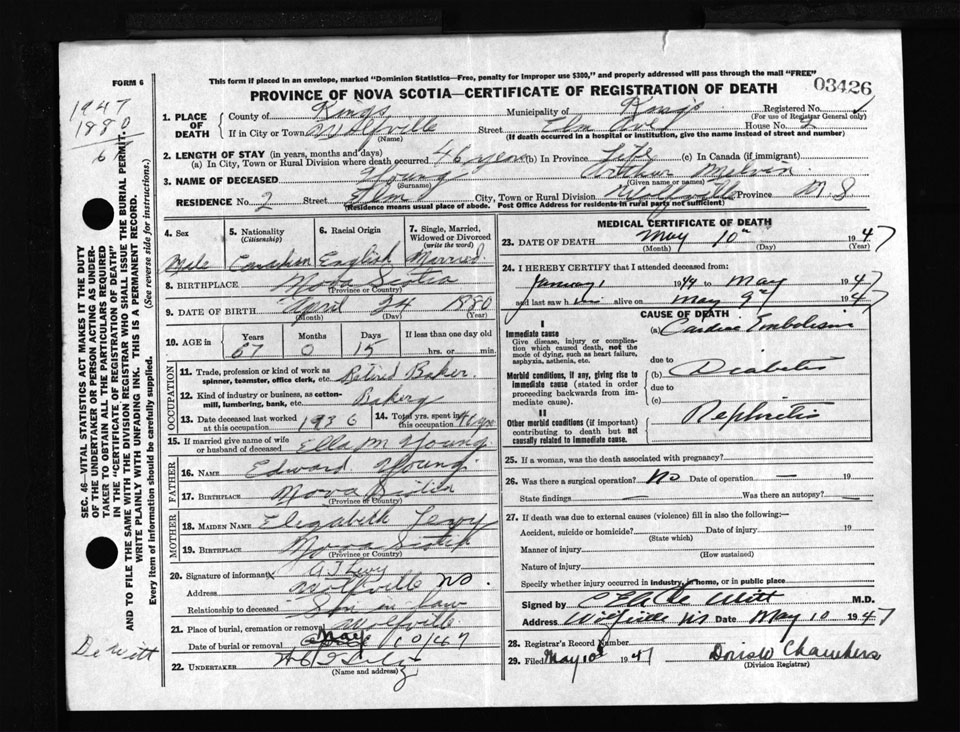 FORM 6
This form if placed in an envelope, marked "Dominion Statistics—Free, penalty for improper use $300," and properly addressed will pass through the mail "FREE"
03426
PROVINCE OF NOVA SCOTIA—CERTIFICATE OF REGISTRATION OF DEATH
1947
1880
67
SEC. 46—VITAL STATISTICS ACT MAKES IT THE DUTY
OF THE UNDERTAKER OR PERSON ACTING AS UNDER-
TAKER TO OBTAIN ALL THE PARTICULARS REQUIRED
IN THE "CERTIFICATE OF REGISTRATION OF DEATH"
AND TO FILE THE SAME WITH THE DIVISION REGISTRAR WHO SHALL ISSUE THE BURIAL PERMIT.
WRITE PLAINLY WITH UNFADING INK. THIS IS A PERMANENT RECORD.
Every item of information should be carefully supplied. (See reverse side for instructions.)
De Witt
1. PLACE OF DEATH
County of Kings Municipality of Kings Registered No.
(For use of Registrar General only)
If in City or Town Wolfville Street Elm Ave House No. 2
(If death occurred in a hospital or institution, give the name instead of street and number)
2. LENGTH OF STAY (in years, months and days)
(a) In City, Town or Rural Division where death occurred 46 years (b) In Province Life (c) In Canada (if immigrant)
3. NAME OF DECEASED Young Arthur Melvin
(Surname) (Given name or names)
RESIDENCE No. 2 Street Elm City, Town or Rural Division Wolfville Province N S
(Residence means usual place of abode. Post Office Address for residents in rural parts not sufficient)
4. Sex 5. Nationality (Citizenship) 6. Racial Origin 7. Single, Married, Widowed or Divorced (write the word)
Male Canadian English Married
8. BIRTHPLACE Nova Scotia
(Province or Country)
9. DATE OF BIRTH April 24 1880
(Month) (Day) (Year)
10. AGE in Years Months Days If less than one day old
67 0 15 hrs. or min.
OCCUPATION
11. Trade, profession or kind of work as spinner, teamster, office clerk, etc. Retired Baker
12. Kind of industry or business, as cotton-mill, lumbering, bank, etc. Bakery
13. Date deceased last worked at this occupation 1936 14. Total yrs. spent in this occupation
15. If married give name of wife or husband of deceased Ella M Young
FATHER
16. NAME Edward Young
17. BIRTHPLACE Nova Scotia
(Province or Country)
MOTHER
18. MAIDEN NAME Elizabeth Levy
19. BIRTHPLACE Nova Scotia
(Province or Country)
20. Signature of informant A J Levy
Address Wolfville
Relationship to deceased Son in law
21. Place of burial, cremation or removal Wolfville
Date of burial or removal May 10/47
22. UNDERTAKER
(Name and address)
MEDICAL CERTIFICATE OF DEATH
23. DATE OF DEATH May 10th 1947
(Month) (Day) (Year)
24. I HEREBY CERTIFY that I attended deceased from:
January 1 19 to May 1947
and last saw h im alive on May 9th 1947
CAUSE OF DEATH
I
Immediate cause
Give disease, injury or complication which caused death, not the mode of dying, such as heart failure, asphyxia, asthenia, etc.
(a) Cardiac Embolism
due to
Morbid conditions, if any, giving rise to immediate cause (stated in order proceeding backwards from immediate cause).
(b) Diabetes
due to
(c)
II
Other morbid conditions (if important) contributing to death but not causally related to immediate cause.
Nephritis
25. If a woman, was the death associated with pregnancy?
26. Was there a surgical operation? No Date of operation — 19
State findings — Was there an autopsy? —
27. If death was due to external causes (violence) fill in also the following:—
Accident, suicide or homicide? Date of injury 19
(State which)
Manner of injury
(How sustained)
Nature of injury
Specify whether injury occurred in industry, in home, or in public place
Signed by De Witt M.D.
Address Wolfville NS Date May 10 1947
28. Registrar's Record Number
29. Filed May 10th 1947 Doris W Chambers
(Division Registrar)